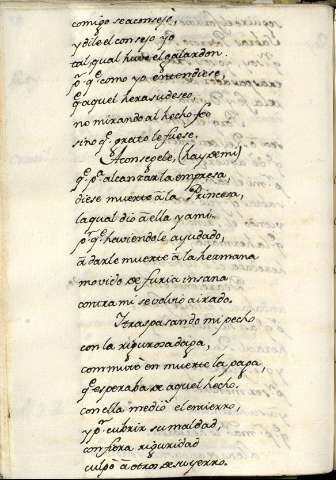 comigo se aconsejò,
y dile el consejo yo
tal, qual huve el galardon.
pr. q.e como yo entendiese,
q.e aquel hera su deseo,
no mirando al hecho feo
sino q.e grato le fuese.
Aconsegele, (hay de mi)
q.e pa. alcanzar la empresa,
diese muerte â la Princesa,
la qual diò â ella y a mi.
pr. q.e haviendole ayudado,
â darle muerte â la hermana
movido de furia insana
contra mi se volviò airado.
Traspasando mi pecho
con la rigurosa daga,
commiviò en muerte la paga,
q.e esperaba de aquel hecho.
con ella mediò el encierro,
y pr. cubrir su maldad,
con fiera riguridad
culpò â otros de su yerro.